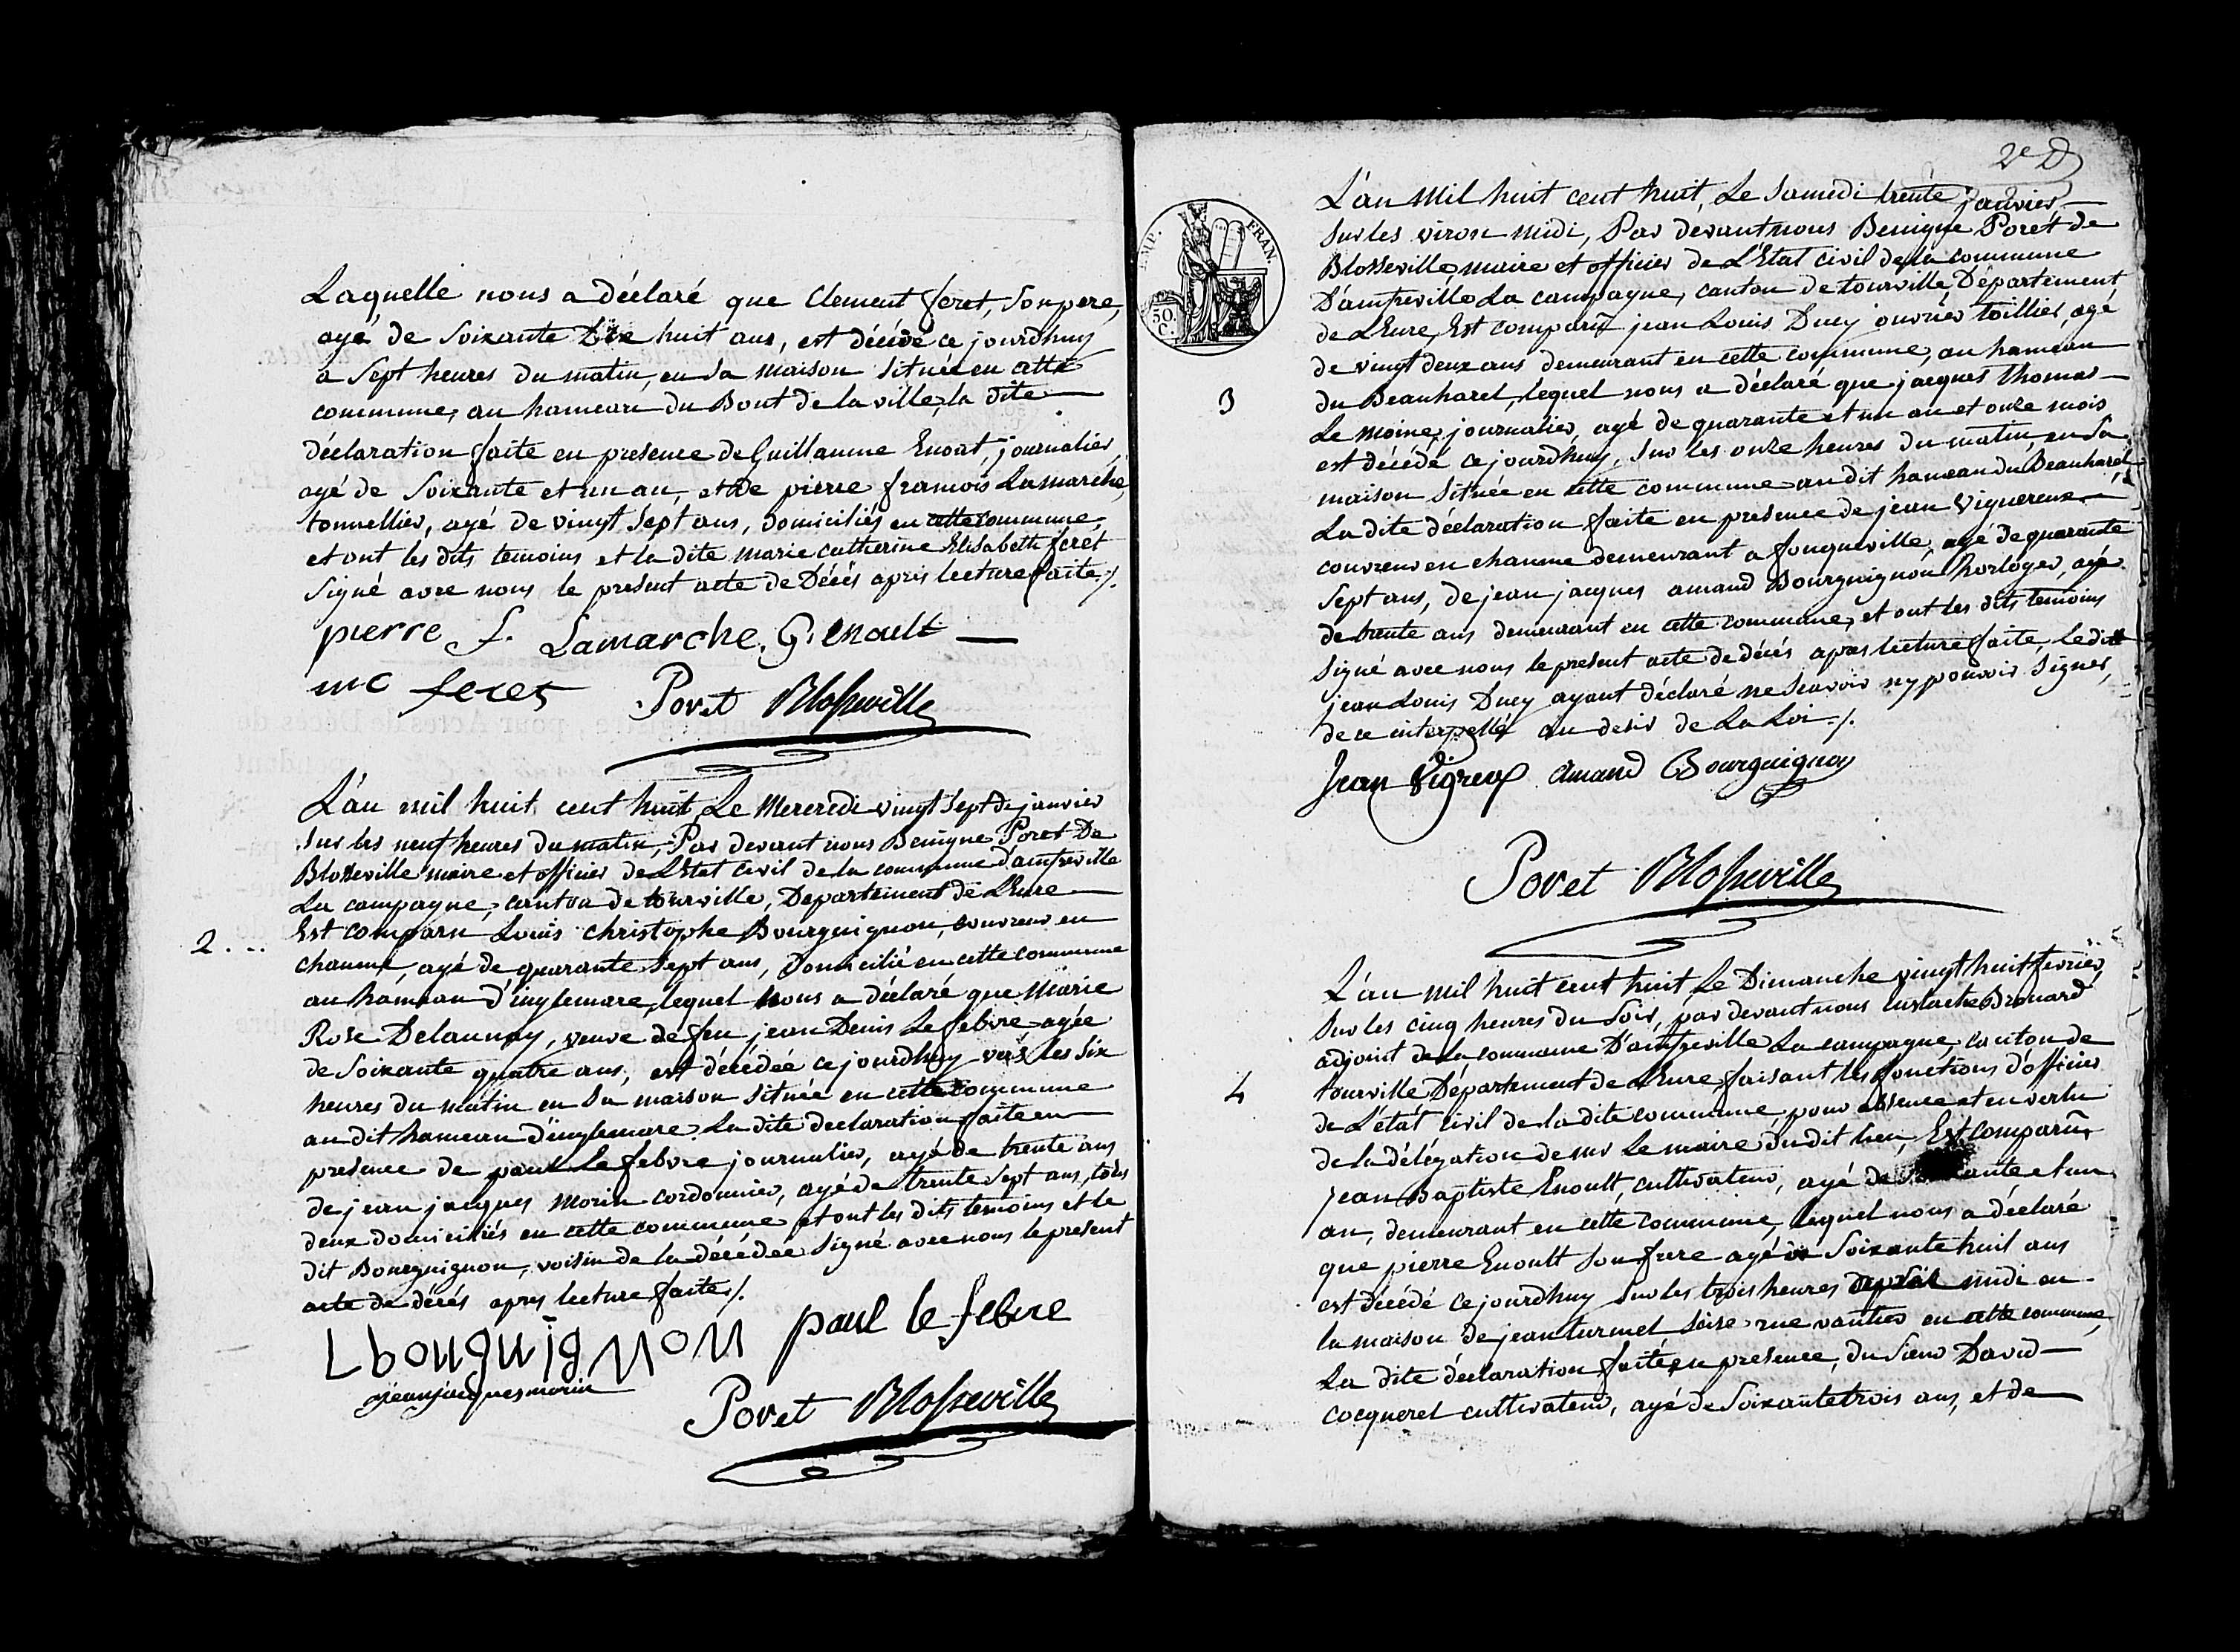 Laquelle nous a déclaré que Clement feret, Son pere,
agé de Soixante Dix huit ans, est décédé ce jourdhuy
a Sept heures du matin, en Sa maison Située en cette
commune, au hameau du Bout de la ville, la dite
déclaration faite en presence de Guillaume Enoat, journalier,
agé de Soixante et un an, et de pierre francois Lamarche,
tonnellier, agé de vingt Sept ans, domiciliés en cette commune,
et ont les dits temoins et la dite marie catherine Elisabeth feret
Signé avec nous le present acte de Décés apres lecture faite ./.
pierre f. Lamarche. G. Enoult
mc feret Poret Blosseville
2...
L'an mil huit cent huit, Le Mercredi vingt Sept de janvier
Sur les neuf heures du matin, Par devant nous Benigne Poret De
Blosseville maire et officier de L'Etat Civil de la commune d'amfreville
La campagne, canton de tourville, Departement de L'Eure
Est comparu Louis christophe Bourguignon, couvreur en
chaume, agé de quarante Sept ans, Domicilié en cette commune
au hameau d'inglemare, lequel Nous a déclaré que Marie
Rose Delaunay, veuve de feu jean Denis Le febvre agée
de Soixante quatre ans, est décédée ce jourdhuy vers les Six
heures du matin en Sa maison Située en cette commune
au dit hameau d'inglemare. La dite declaration faite en
presence de paul Le febvre journalier, agé de trente ans
de jean jacques Morin cordonnier, agé de trente Sept ans, tous
deux domiciliés en cette commune et ont les dits temoins et le
dit Bourguignon, voisin de la décédée Signé avec nous le present
acte de décés apres lecture faite ./.
L bouguignon paul le febvre
jean jacques morin
Poret Blosseville
2e
EMP. FRAN.
50.
C.
L'an Mil huit cent huit, Le Samedi trente janvier
Sur les viron midi, Par devant nous Benigne Poret de
Blosseville, maire et officier de L'Etat civil de la commune
D'amfreville La campagne, canton de tourville, Département
de L'Eure, Est comparu jean Louis Ducy ouvrier toillier, agé
de vingt deux ans demeurant en cette commune, au hameau
3
du Beauharel, lequel nous a déclaré que jacques Thomas
Le moine, journalier, agé de quarante et un an et onze mois
est décédé ce jourdhuy, Sur les onze heures du matin, en Sa
maison Située en cette commune au dit hameau du Beauharel,
La dite déclaration faite en presence de jean Vignereux
couvreur en chaume demeurant a fouqueville, agé de quarante
Sept ans, de jean jacques amand Bourguignon horloger, agé
de trente ans demeurant en cette commune, et ont les dits temoins
Signé avec nous le present acte de décés apres lecture faite, le dit
jean Louis Ducy ayant déclaré ne Scavoir ny pouvoir Signer,
de ce interpellé au desir de La Loi ./.
Jean Vigreux Amand Bourguignon
Poret Blosseville
L'an mil huit cent huit, Le Dimanche vingt huit fevrier,
Sur les cinq heures du Soir, par devant nous Eustache Drouard
adjoint de la commune D'amfreville La campagne, canton de
4
tourville Département de L'Eure faisant les fonctions d'officier
de L'état civil de la dite commune pour absence et en vertu
de la délégation de mr Le maire du dit lieu, Est comparu,
jean Baptiste Enoult, cultivateur, agé de et un
an, demeurant en cette commune, lequel nous a déclaré
que pierre Enoult Son frere agé de Soixante huit ans
est décédé ce jourdhuy Sur les trois heures midi en
la maison de jean turmel Sise rue vautier en cette commune,
La dite déclaration faite en presence, du Sieur David
cocquerel cultivateur, agé de Soixante trois ans, et de